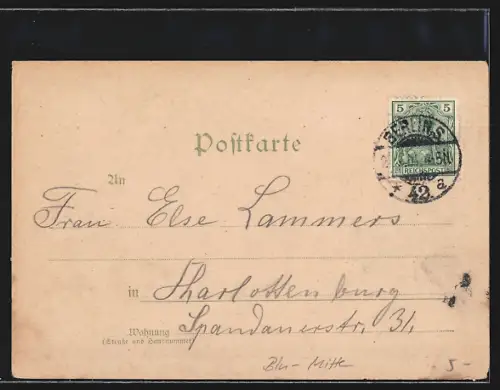 5 5
REICHSPOST
BERLIN S.
* 42 a
Postkarte
An
Frau Else Lammers
in Charlottenburg
Wohnung Spandauerstr. 31.
(Straße und Hausnummer)
Bln-Mitte
5-